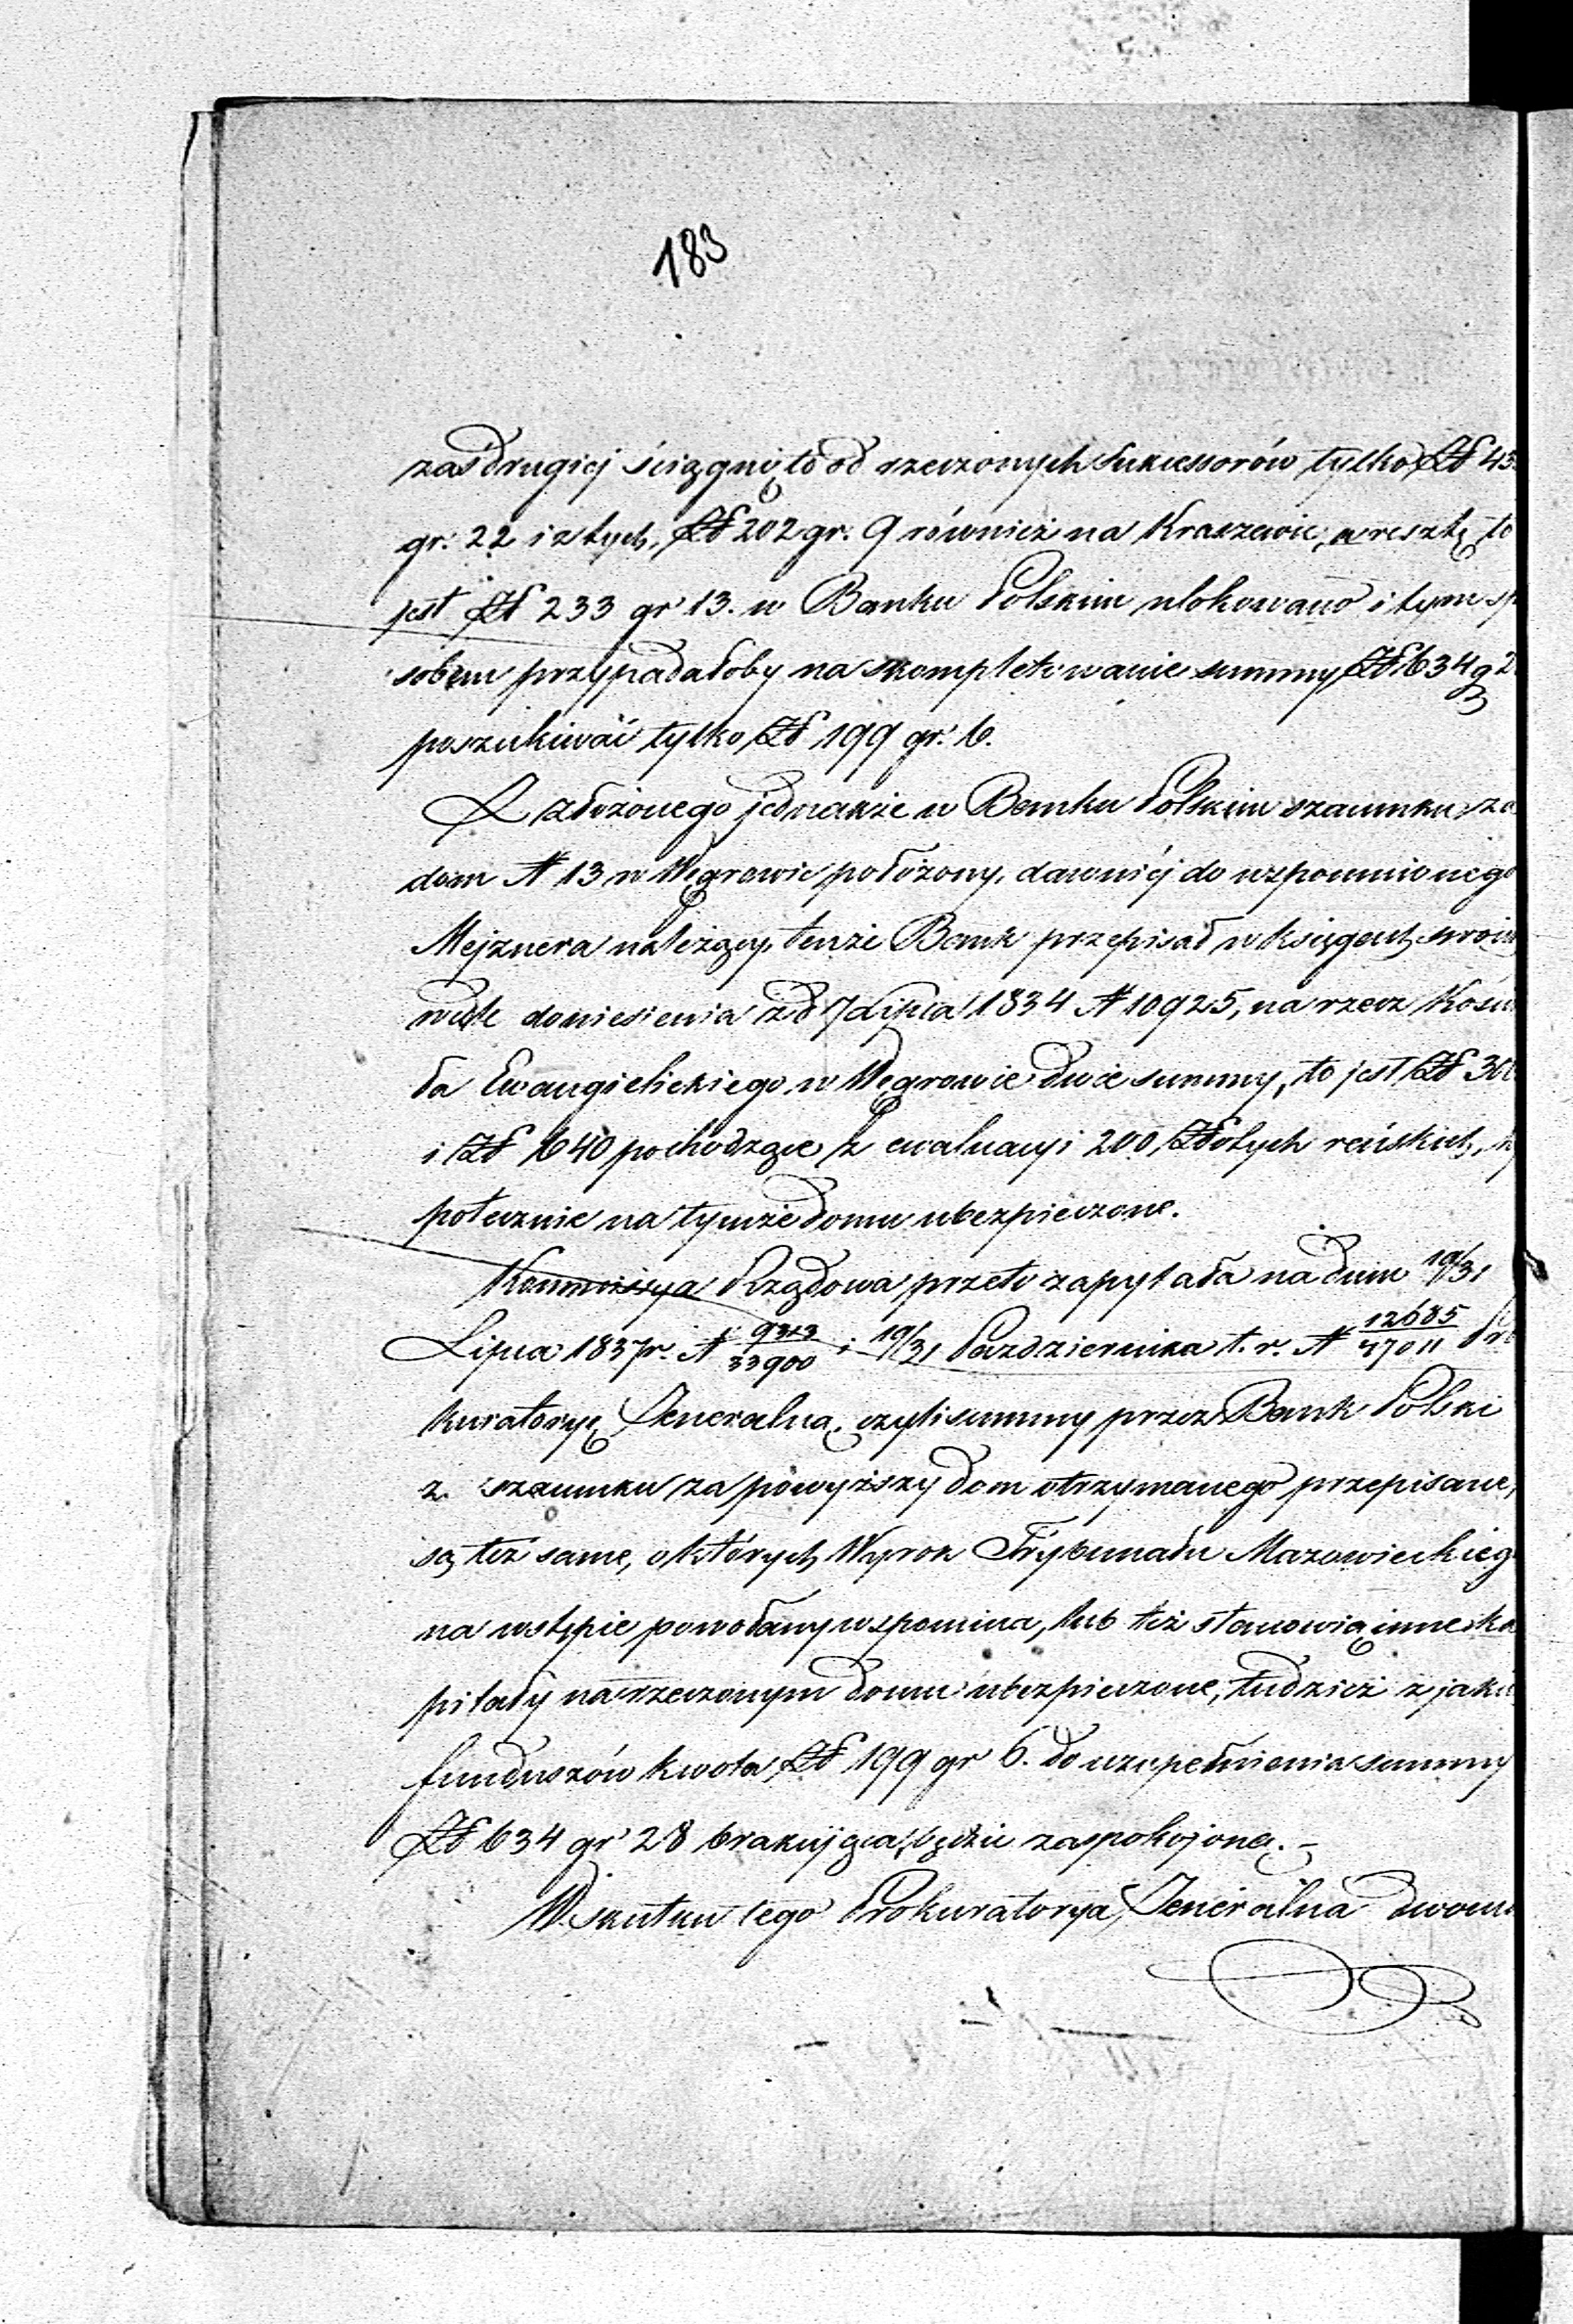 183
zaś drugiej ściągnięto od rzeczonych Sukcessorów tylko Zł 43
gr. 22 i z tych, Zł 202 gr. 9 również na Kraszewie, a resztę to
jest Zł 233 gr 13. w Banku Polskim ulokowano i tym sp
sobem przypadałoby na skompletowanie summy Zł 634 g 2
poszukiwać tylko Zł 199 gr. 6.
Z złożonego jednakże w Banku Polskim szacunku za
dom N 13 w Węgrowie położony, dawniéj do wspomnionego
Mejznera należący, tenże Bank przepisał w księgach swoich
wedle doniesienia z d 7 Lipca 1834 N 10925, na rzecz Kościo
ła Ewangielickiego w Węgrowie dwie summy, to jest Zł 300
i Zł 640 pochodzące z ewaluacyi 200 Złotych reńskich, hy
potecznie na tymże domu ubezpieczone.
Kommissya Rządowa przeto zapytała na dniu 19/31
Lipca 1837 r. N 9313/33900 i 19/31 Października t. r. N 12685/47011 Pro
kuratoryę Jeneralną, czyli summy przez Bank Polski
z szacunku za powyższy dom otrzymanego przepisane,
są też same, o których Wyrok Trybunału Mazowieckieg
na wstępie powołany wspomina, lub też stanowią inne ka
pitały na rzeczonym domu ubezpieczone, tudzież z jaki
funduszów kwota Zł 199 gr 6. do uzupełnienia summy
Zł 634 gr 28 brakująca, będzie zaspokojoną. –
W skutku tego Prokuratorya Jeneralna dwoma